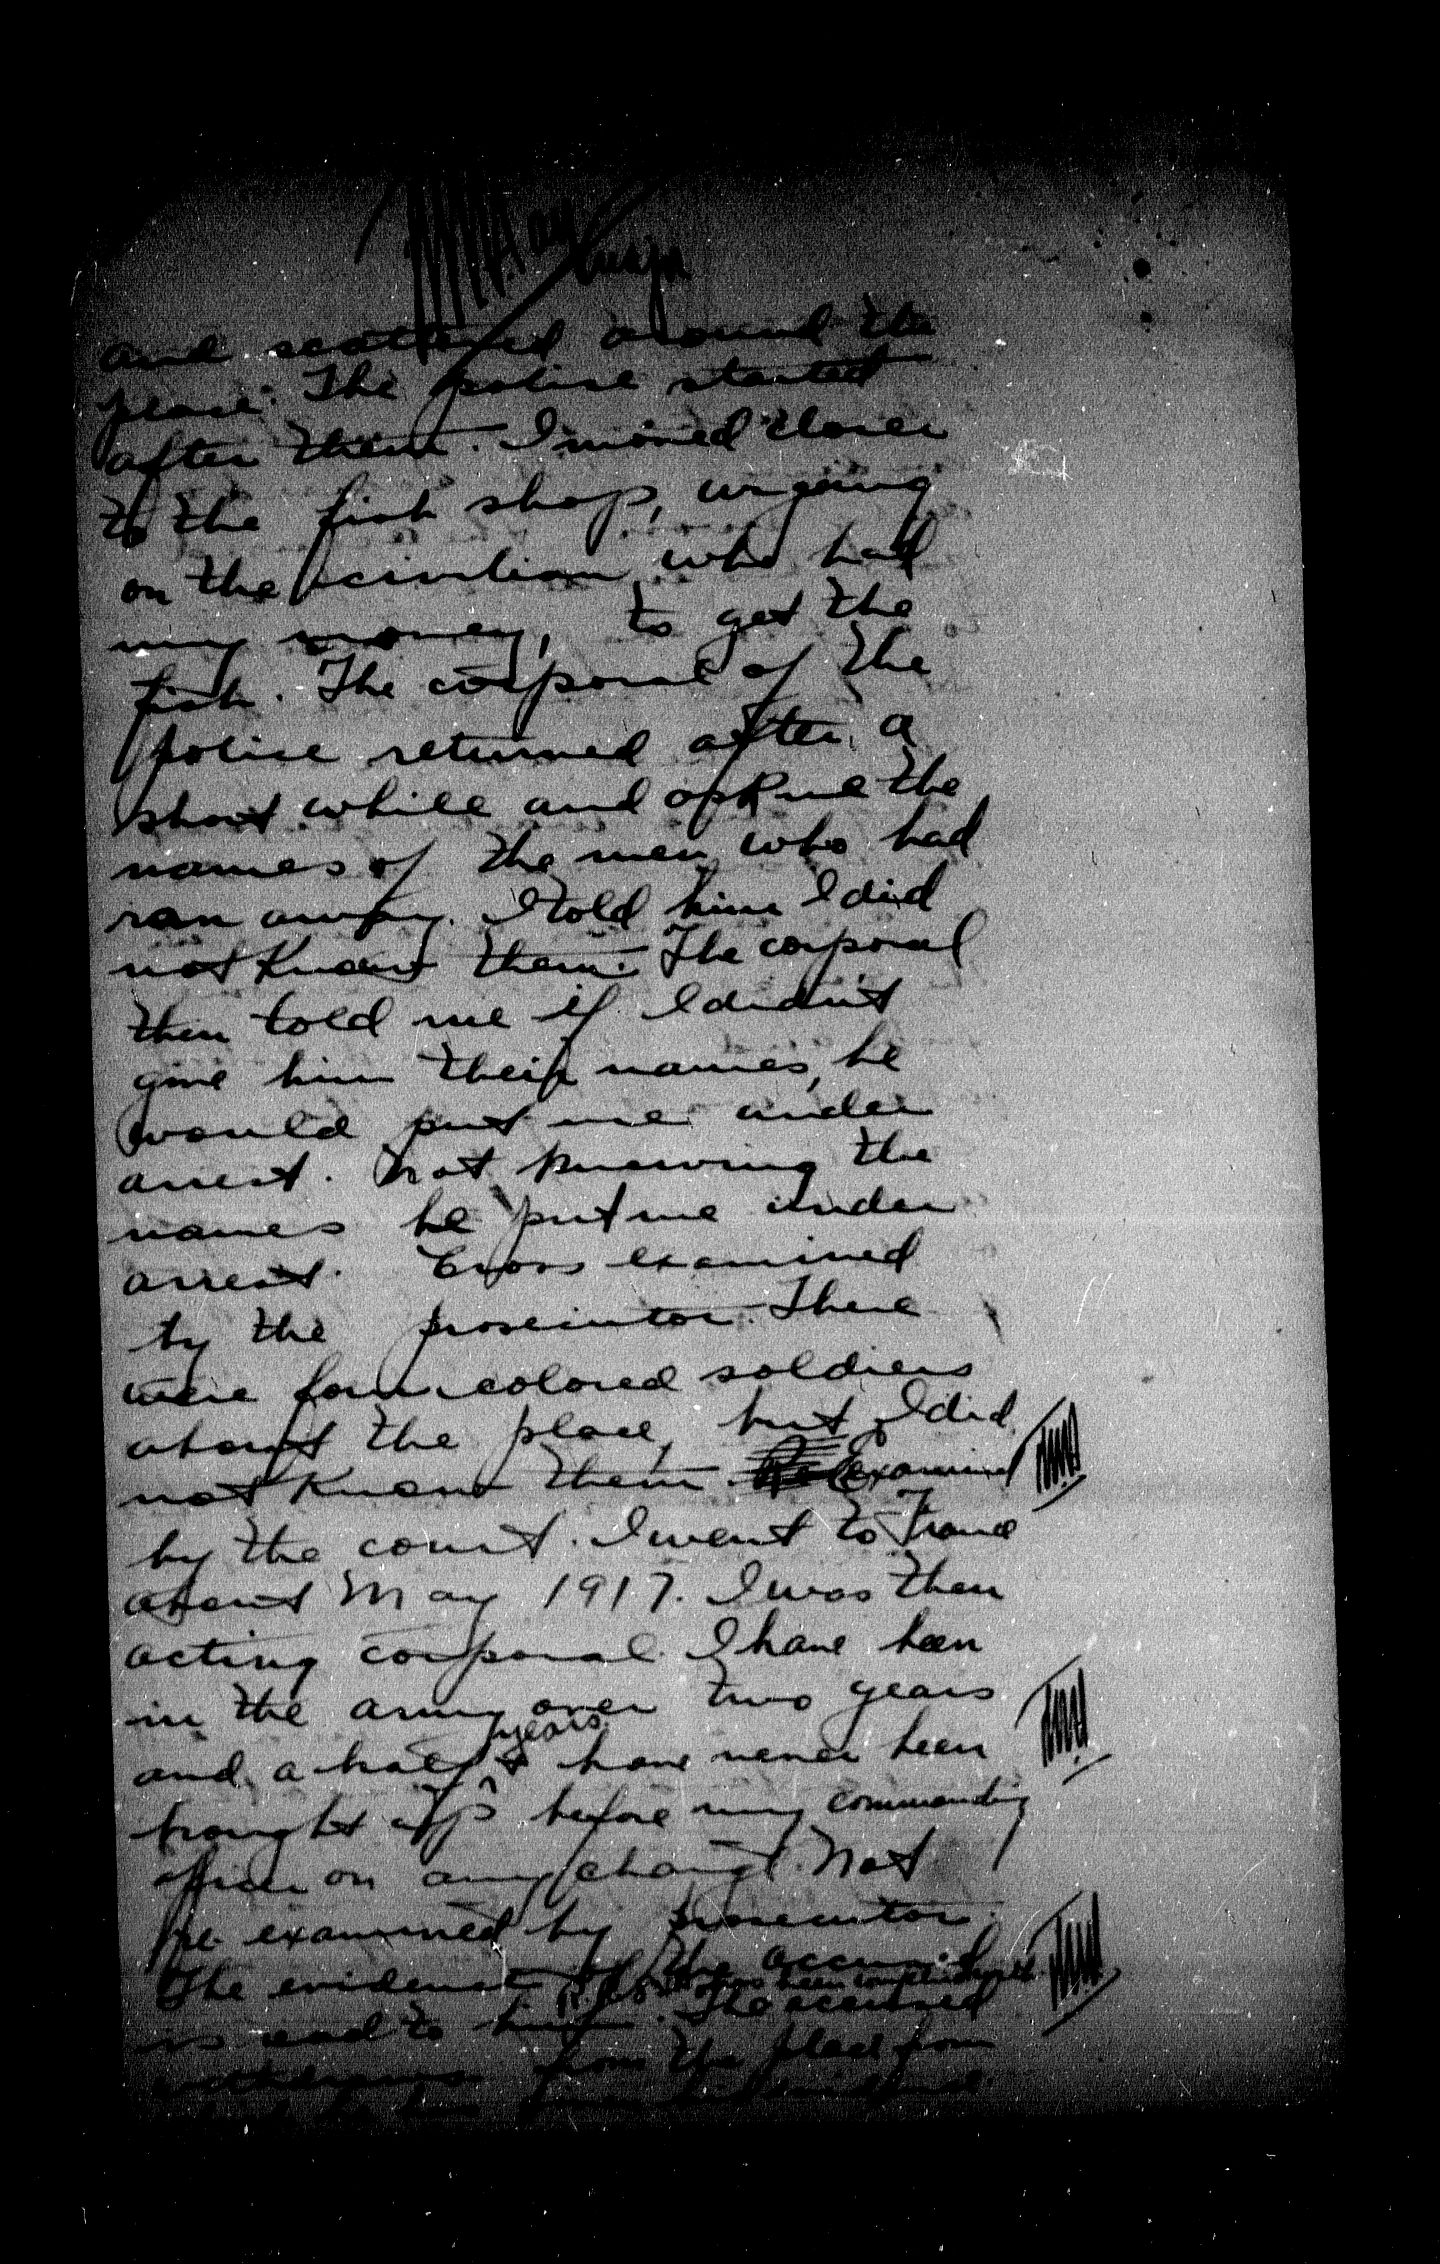 and scattered around the
place. The police started
after them. I moved closer
to the fish shop, urgeing
on the civilian who had
my money, to get the
fish. The corporal of the
police returned after a
short while and ask me the
names of the men who had
ran away. I told him I did
not know them. The corporal
then told me if I didn't
give him their names, he
would put me under
arrest. Not knowing the
names he put me under
arrest. Cross examined
by the prosecutor. There
were four colored soldiers
about the place, but I did
not know them. Examined
by the court. I went to France
about May 1917. I was then
acting corporal. I have been
in the army over two years
years
and a half & have never been
brought up before my commanding
officer on any charge. Not
re-examined by prosecutor.
The evidence of the accused
is read to him. The accused
withdraws from the place from
which he has given his evidence.